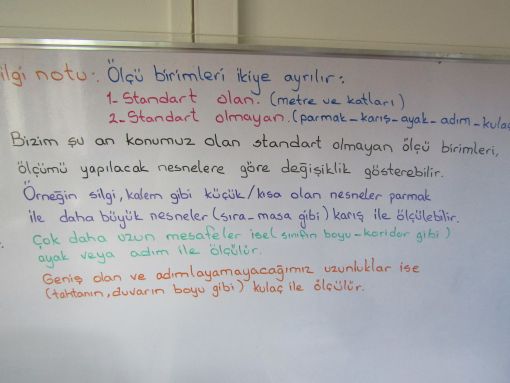 ilgi notu:. Ölçü birimleri ikiye ayrılır:
1- Standart olan. (metre ve katları)
2- Standart olmayan. (parmak-karış-ayak-adım-kulaç
Bizim şu an konumuz olan standart olmayan ölçü birimleri,
ölçümü yapılacak nesnelere göre değişiklik gösterebilir.
Örneğin silgi, kalem gibi küçük/kısa olan nesneler parmak
ile daha büyük nesneler (sıra-masa gibi) karış ile ölçülebilir.
Çok daha uzun mesafeler ise (sınıfın boyu-koridor gibi)
ayak veya adım ile ölçülür.
Geniş olan ve adımlayamayacağımız uzunluklar ise
(tahtanın, duvarın boyu gibi) kulaç ile ölçülür.